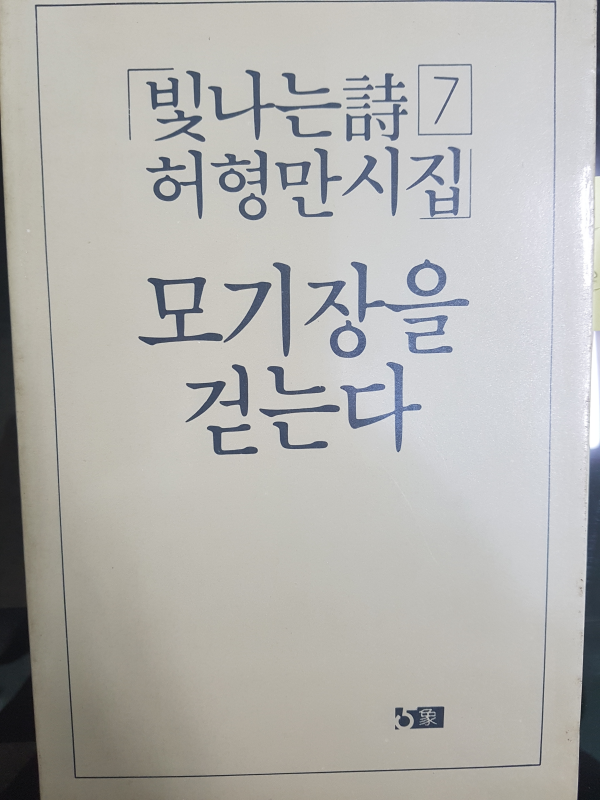 「빛나는詩 7
허형만시집」
모기장을
걷는다
象